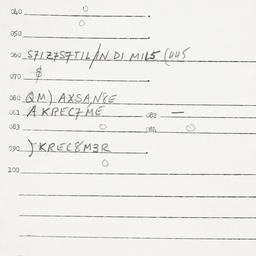 040
050
060 S7IZ7S7TIL/N DI MIL5 (445
070 $
080 QM) AXSAN8E
081 A KREC7ME 082 —
083 084
090 )KREC8M3R
100